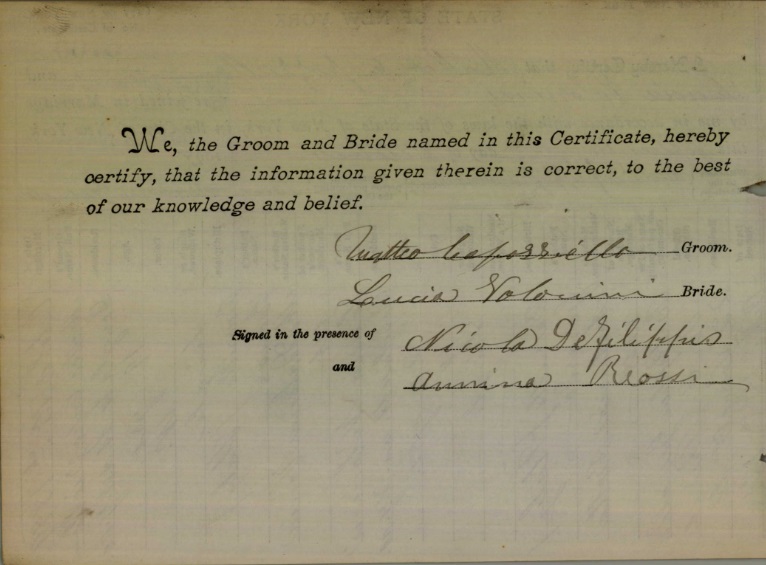 We, the Groom and Bride named in this Certificate, hereby
certify, that the information given therein is correct, to the best
of our knowledge and belief.
Matteo Caporriello Groom.
Lucia Volonini Bride.
Signed in the presence of Nicola DeFilippis
and Annina Rossi